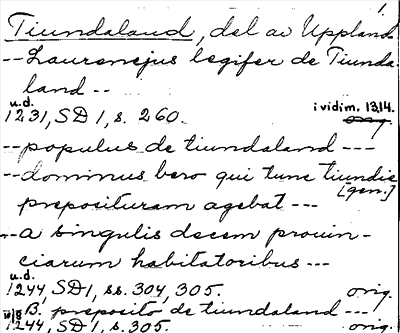 1.
Tiundaland, del av Uppland
-- Laurencjus legifer de Tiunda-
land --
u.d. i vidim. 1314.
1231, SD 1, s. 260. orig.
-- populus de tiundaland ---
-- dominus vero qui tunc tiundie [gen.]
preposituram agebat ---
-- a singulis decem prouin-
ciarum habitatoribus ---
u.d.
1244, SD 1, ss. 304, 305. orig.
B. preposito de tiundaland ---
1244, SD 1, s. 305. orig.